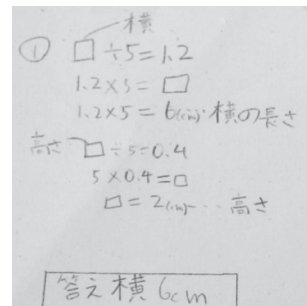 横
① □÷5=1.2
1.2×5=□
1.2×5=6(cm)…横の長さ
高さ □÷5=0.4
5×0.4=□
□=2(cm)…高さ
答え 横6cm